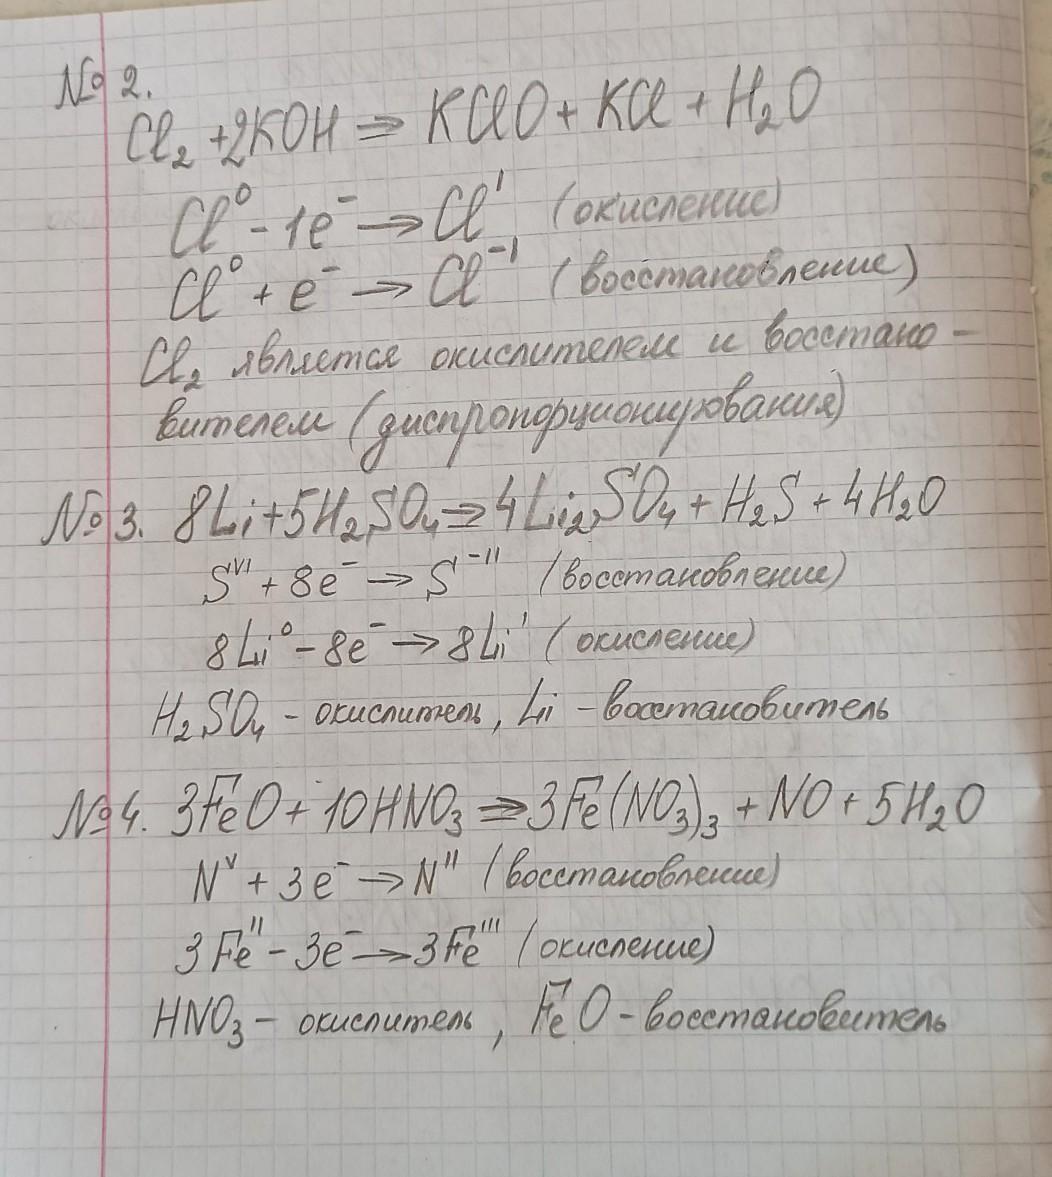 № 2.
Cl₂ + 2KOH ⇒ KClO + KCl + H₂O
Cl⁰ - 1e⁻ → Cl^I (окисление)
Cl⁰ + e⁻ → Cl^-I (восстановление)
Cl₂ является окислителем и восстано-
вителем (диспропорционирования)
№ 3. 8Li + 5H₂SO₄ ⇒ 4Li₂SO₄ + H₂S + 4H₂O
S^VI + 8e⁻ → S^-II (восстановление)
8Li⁰ - 8e⁻ → 8Li^I (окисление)
H₂SO₄ - окислитель, Li - восстановитель
№ 4. 3FeO + 10HNO₃ ⇒ 3Fe(NO₃)₃ + NO + 5H₂O
N^V + 3e⁻ → N^II (восстановление)
3Fe^II - 3e⁻ → 3Fe^III (окисление)
HNO₃ - окислитель, FeO - восстановитель